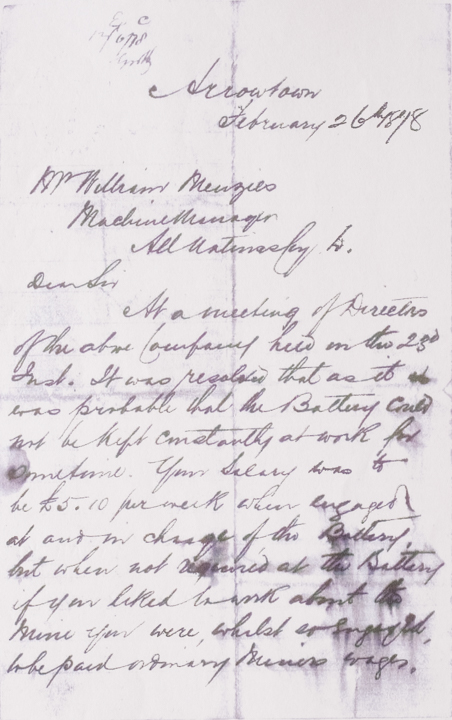 Arrowtown
February 26th 1878
Mr William Menzies
Machine Manager
All Nations Coy Ld.
Dear Sir
At a meeting of Directors
of the above Company held on the 23d
Inst. It was resolved that as it
was probable that the Battery could
not be kept constantly at work for
sometime. Your Salary was to
be £5.10 per week when engaged
at and in charge of the Battery,
but when not required at the Battery
if you liked to work about the
Mine you were, whilst so engaged,
to be paid ordinary Miners wages.